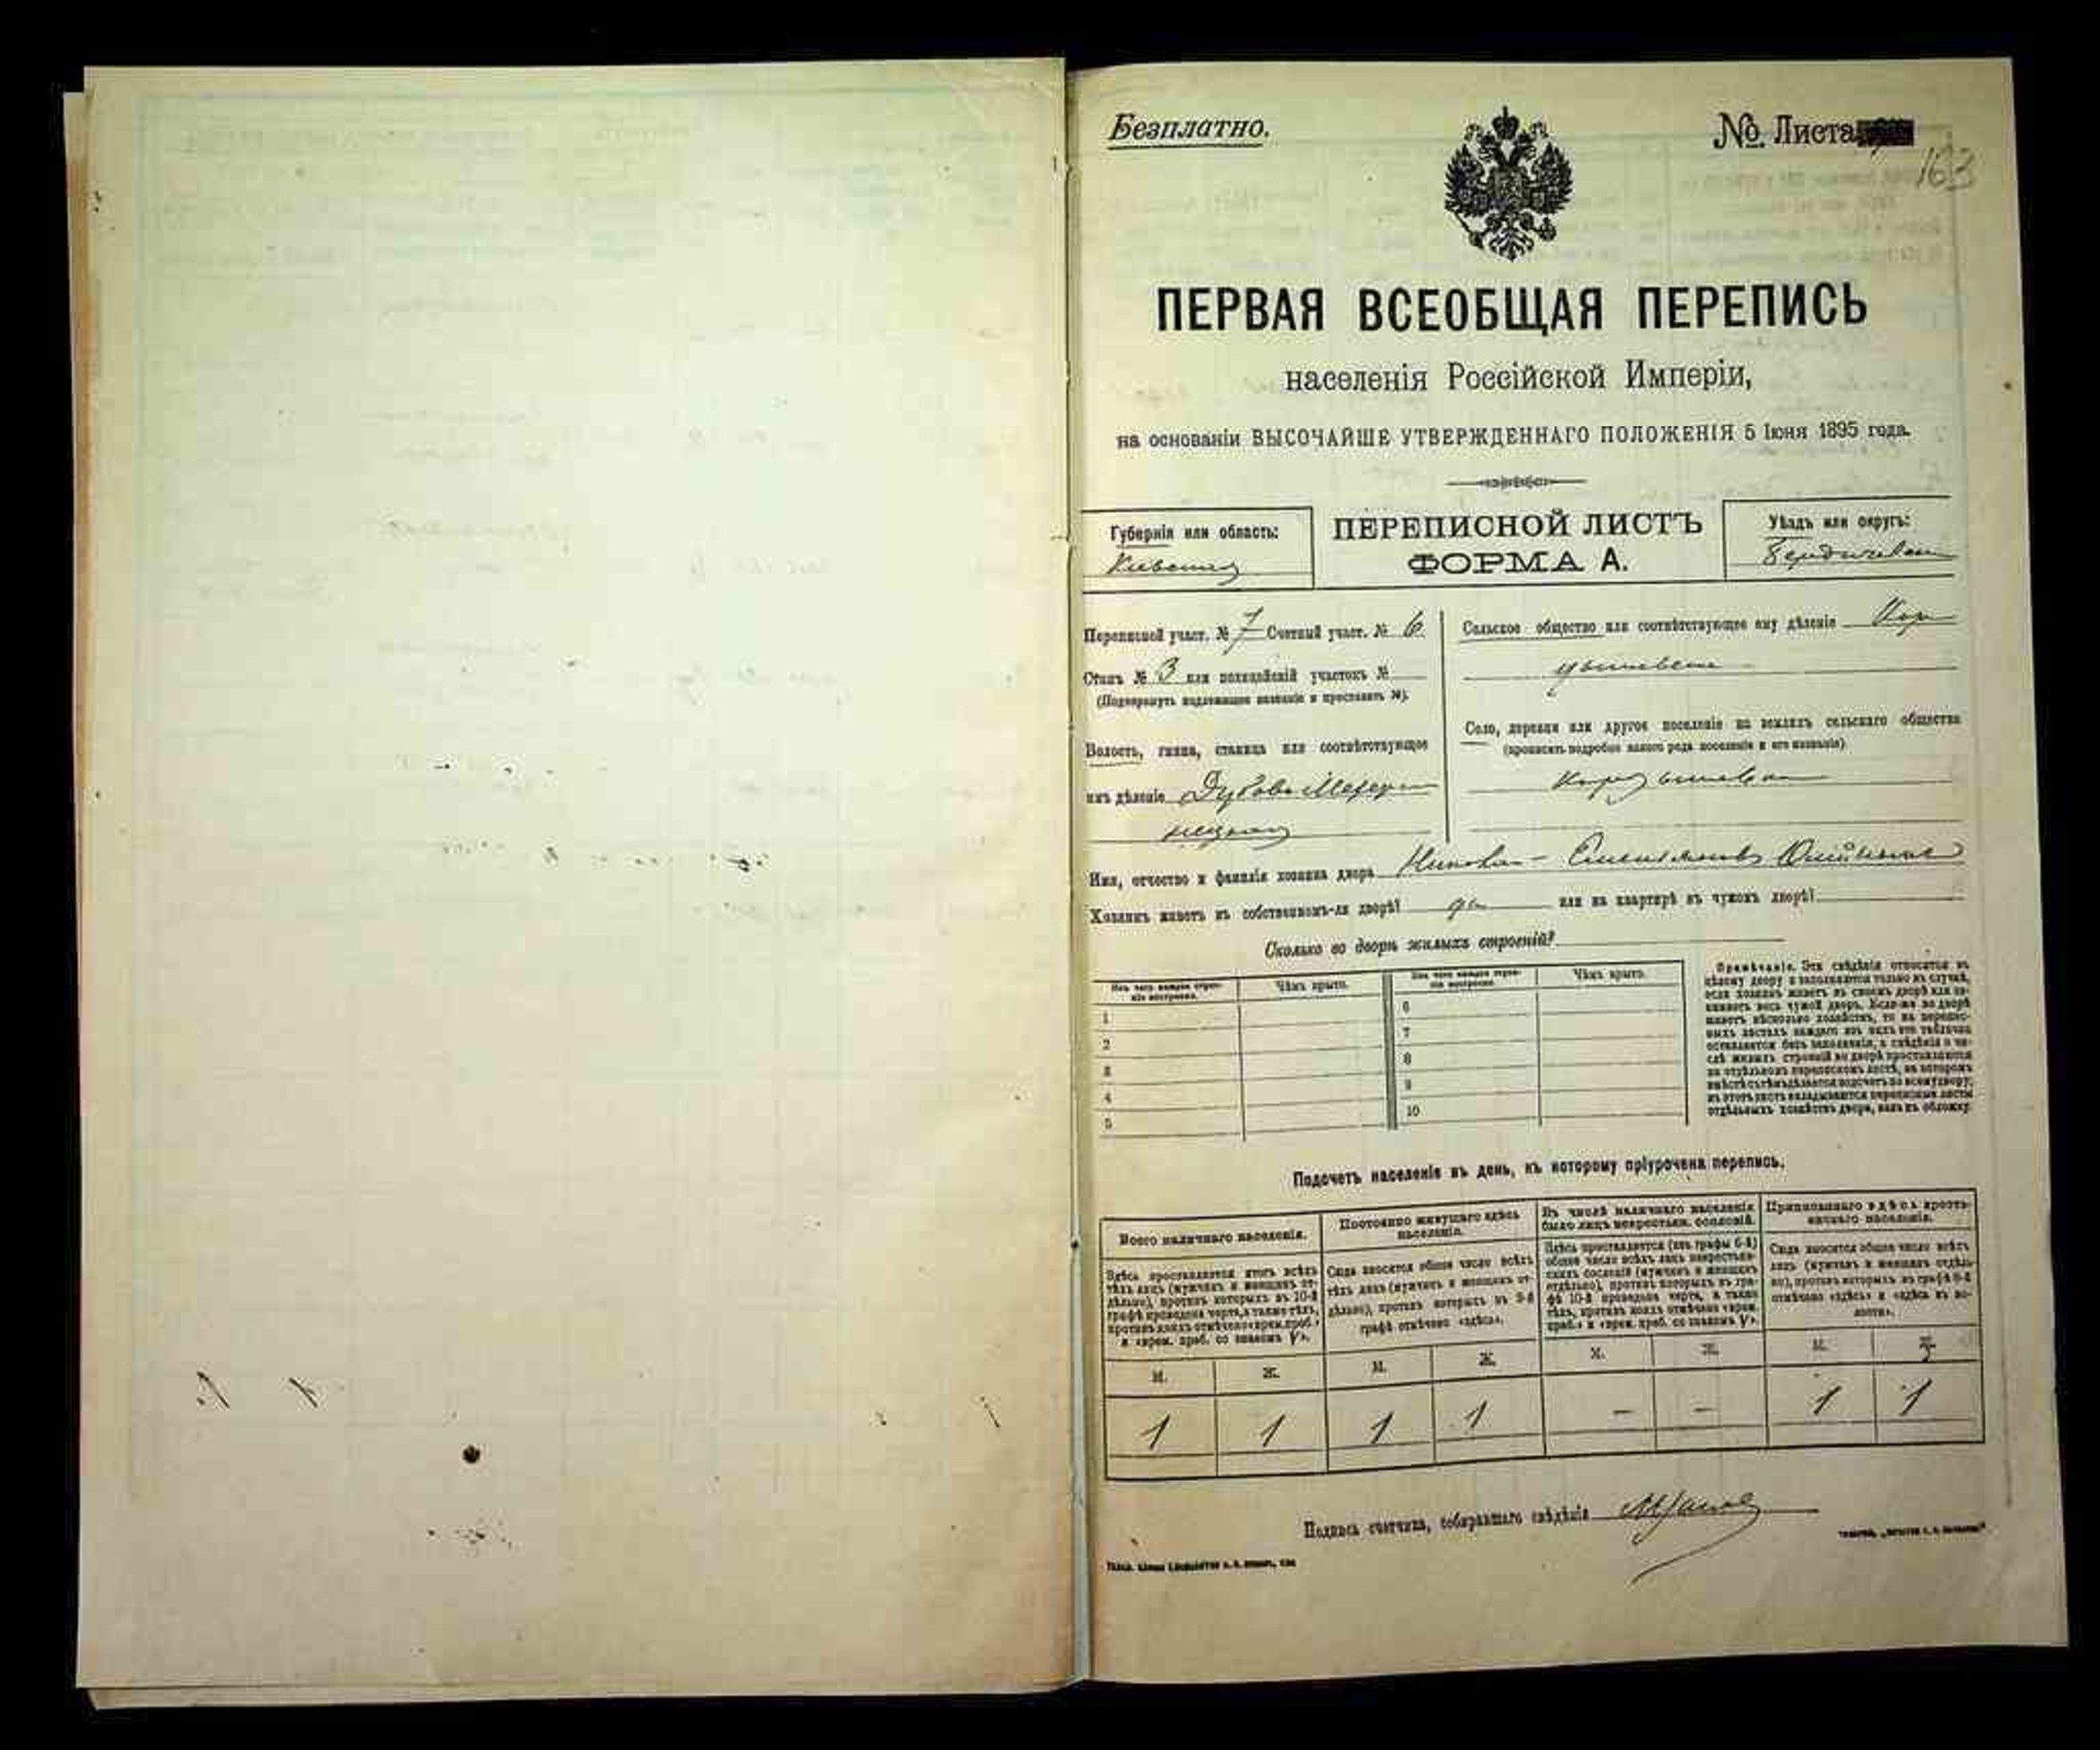 Безплатно.
№ Листа
163
ПЕРВАЯ ВСЕОБЩАЯ ПЕРЕПИСЬ
населенія Россійской Имперіи,
на основаніи ВЫСОЧАЙШЕ УТВЕРЖДЕННАГО ПОЛОЖЕНІЯ 5 Іюня 1895 года.
Губернія или область:
ПЕРЕПИСНОЙ ЛИСТЪ
ФОРМА А.
Уѣздъ или округъ:
Переписной участ. № 7 Счетный участ. № 6
Станъ № 3 или полицейскій участокъ №
(Подчеркнуть надлежащее названіе и проставить №).
Волость, гмина, станица или соотвѣтствующее
имъ дѣленіе
Сельское общество или соотвѣтствующее ему дѣленіе
Село, деревня или другое поселеніе на земляхъ сельскаго общества
(прописать подробно какого рода поселеніе и его названіе)
Имя, отчество и фамилія хозяина двора
Хозяинъ живетъ въ собственномъ-ли дворѣ? да или на квартирѣ въ чужомъ дворѣ?
Сколько во дворѣ жилыхъ строеній?
Изъ чего каждое строе-
ніе построено.
Чѣмъ крыто.
Изъ чего каждое строе-
ніе построено.
Чѣмъ крыто.
1
2
3
4
5
6
7
8
9
10
Примѣчаніе. Эти свѣдѣнія относятся къ
цѣлому двору и заполняются только въ случаѣ,
если хозяинъ живетъ въ своемъ дворѣ или за-
нимаетъ весь чужой дворъ. Если-же во дворѣ
живетъ нѣсколько хозяйствъ, то на перепис-
ныхъ листахъ каждаго изъ нихъ эта табличка
оставляется безъ заполненія, а свѣдѣнія о чи-
слѣ жилыхъ строеній во дворѣ проставляются
на отдѣльномъ переписномъ листѣ, на которомъ
вмѣстѣ съ тѣмъ дѣлается подсчетъ по всему двору;
въ этотъ листъ вкладываются переписные листы
отдѣльныхъ хозяйствъ двора, какъ въ обложку.
Подсчетъ населенія въ день, къ которому пріурочена перепись.
Всего наличнаго населенія.
Постоянно живущаго здѣсь
населенія.
Въ числѣ наличнаго населенія
было лицъ некрестьян. сословій.
Приписаннаго здѣсь кресть-
янскаго населенія.
Здѣсь проставляется итогъ всѣхъ
тѣхъ лицъ (мужчинъ и женщинъ от-
дѣльно), противъ которыхъ въ 10-й
графѣ проведена черта, а также тѣхъ,
противъ коихъ отмѣчено «врем. преб.»
и «врем. преб. со знакомъ V».
Сюда вносится общее число всѣхъ
тѣхъ лицъ (мужчинъ и женщинъ от-
дѣльно), противъ которыхъ въ 9-й
графѣ отмѣчено «здѣсь».
Здѣсь проставляется (изъ графы 6-й)
общее число всѣхъ лицъ некрестьян-
скихъ сословій (мужчинъ и женщинъ
отдѣльно), противъ которыхъ въ гра-
фѣ 10-й проведена черта, а также
тѣхъ, противъ коихъ отмѣчено «врем.
преб.» и «врем. преб. со знакомъ V».
Сюда вносится общее число всѣхъ
лицъ (мужчинъ и женщинъ отдѣль-
но), противъ которыхъ въ графѣ 8-й
отмѣчено «здѣсь» и «здѣсь въ во-
лости».
М. Ж. М. Ж. М. Ж. М. Ж.
1 1 1 1 – – 1 1
Подпись счетчика, собиравшаго свѣдѣнія